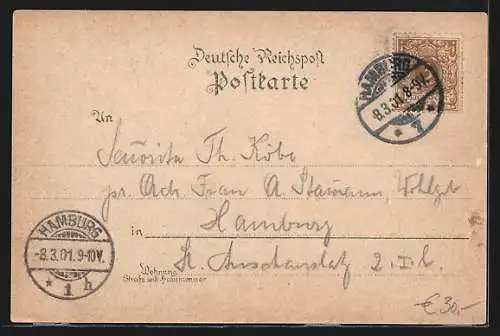 Deutsche Reichspost
Postkarte
HAMBURG
8.3.01.8-9V.
* 7 *
An
Señorita Th. Kobe
pr. Adr. Frau A.
in Hamburg
St. 2. I. l.
Wohnung
Straße und Hausnummer
HAMBURG
-8.3.01.9-10V.
* 1 h
€ 30,-